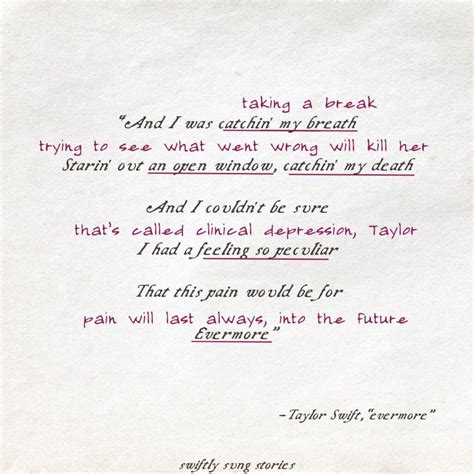 taking a break
“And I was catchin' my breath
trying to see what went wrong will kill her
Starin' out an open window, catchin' my death
And I couldn't be sure
that's called clinical depression, Taylor
I had a feeling so peculiar
That this pain would be for
pain will last always, into the future
Evermore”
–Taylor Swift, “evermore”
swiftly sung stories